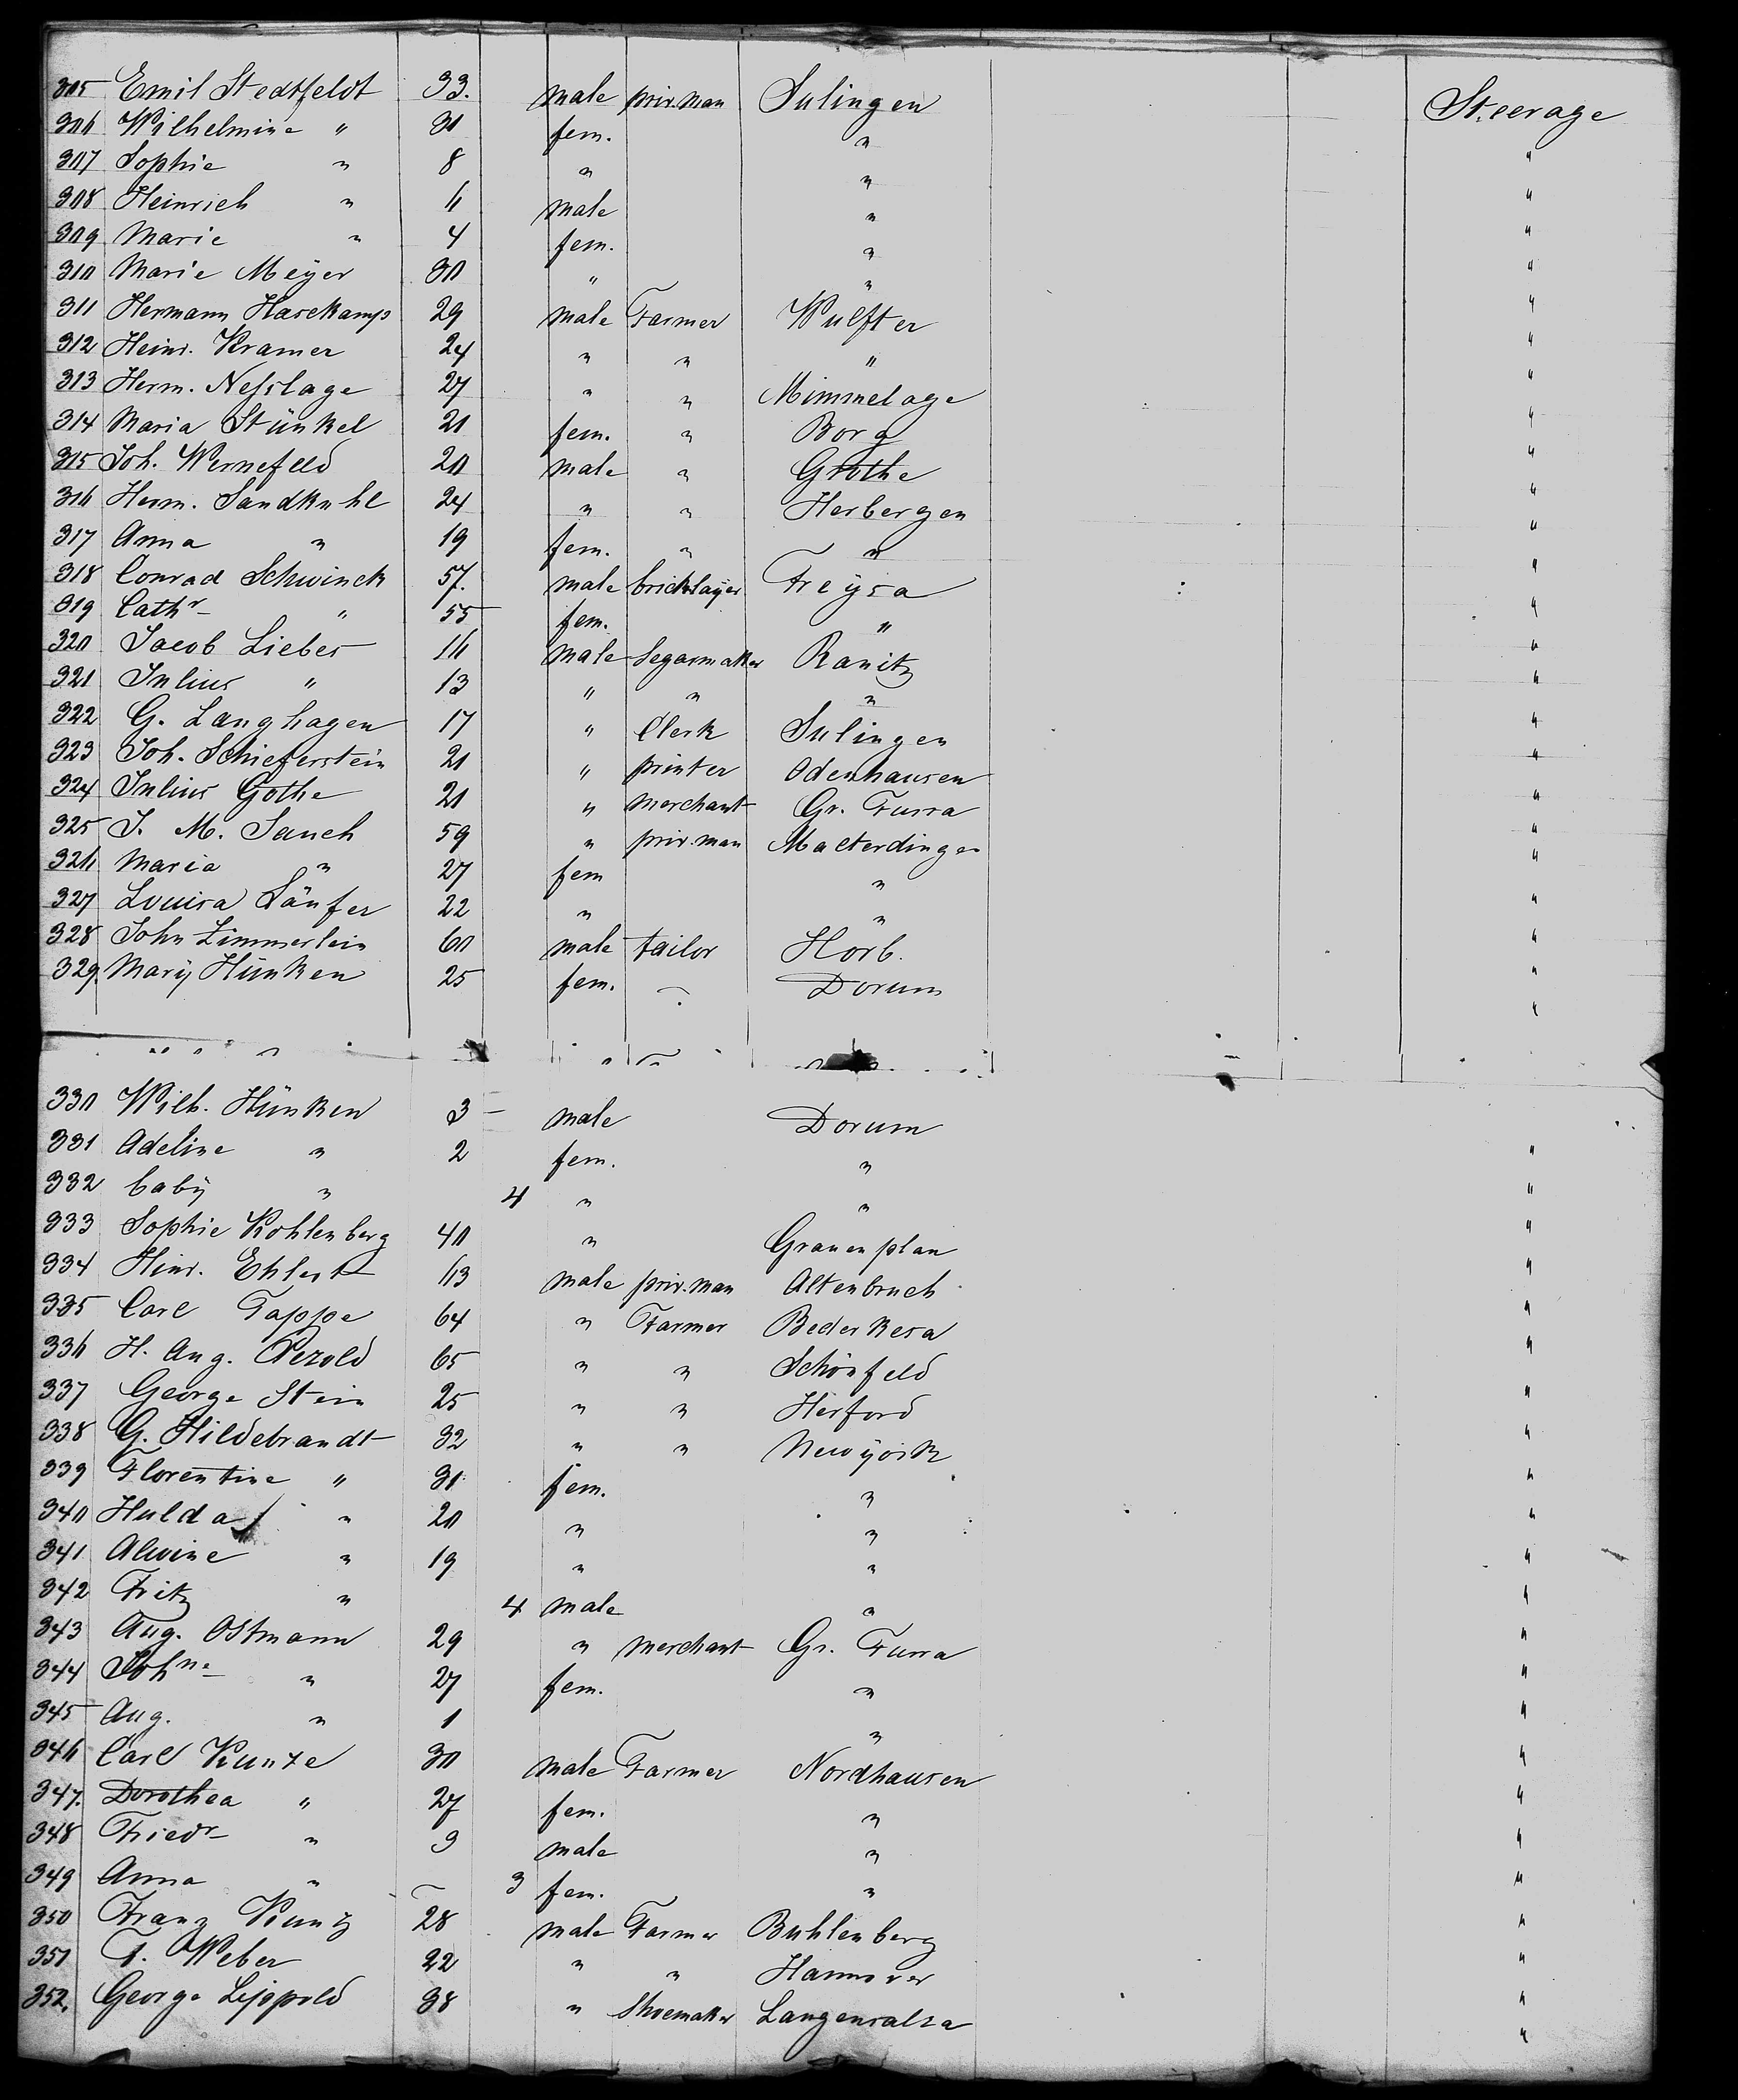 305 Emil Stedtfeldt 33. male priv. man Sulingen Steerage
306 Wilhelmine " 31 fem. " "
307 Sophie " 8 " " "
308 Heinrich " 6 male " "
309 Marie " 4 fem. " "
310 Marie Meyer 30 " " "
311 Hermann Harekamp 29 male Farmer Wulften "
312 Heinr. Kramer 24 " " " "
313 Herm. Nesslage 27 " " Mimmelage "
314 Maria Stünkel 21 fem. " Borg "
315 Joh. Wernefeld 20 male " Grothe "
316 Herm. Sandkuhl 24 " " Herbergen "
317 Anna " 19 fem. " " "
318 Conrad Schwinck 57. male bricklayer Freysa "
319 Cathr " 55 fem. " "
320 Jacob Lieber 16 male Segarmaker Ranitz "
321 Julius " 13 " " " "
322 G. Langhagen 17 " Clerk Sulingen "
323 Joh. Schieferstein 21 " printer Odenhausen "
324 Julius Gothe 21 " merchant Gr. Furra "
325 J. M. Sauch 59 " priv. man Malterdingen "
326 Maria " 27 fem " "
327 Louisa Säufer 22 " " "
328 John Zimmerlein 60 male tailor Horb. "
329. Mary Hünken 25 fem. Dorum "
330 Wilh. Hünken 3 male Dorum
331 Adeline " 2 fem. " "
332 baby " 4 " " "
333 Sophie Kohlenberg 40 " Grauenplan "
334 Hinr. Ehlert 63 male priv. man Altenbruch "
335 Carl Tappe 64 " Farmer Bederkesa "
336 H. Aug. Pezold 65 " " Schönfeld "
337 George Stein 25 " " Herford "
338 G. Hildebrandt 32 " " Newyork "
339 Florentine " 31 fem. " "
340 Hulda " 20 " " "
341 Alwine " 19 " " "
342 Fritz " 4 male " "
343 Aug. Ostmann 29 " merchant Gr. Furra "
344 Johne " 27 fem. " "
345 Aug. " 1 " "
346 Carl Kunze 30 male Farmer Nordhausen "
347. Dorothea " 27 fem. " "
348 Friedr " 9 male " "
349 Anna " 3 fem. " "
350 Franz Kunz 28 male Farmer Buhlenberg "
351 F. Weber 22 " " Hannover "
352. George Lippold 38 " Shoemaker Langensalza "
"